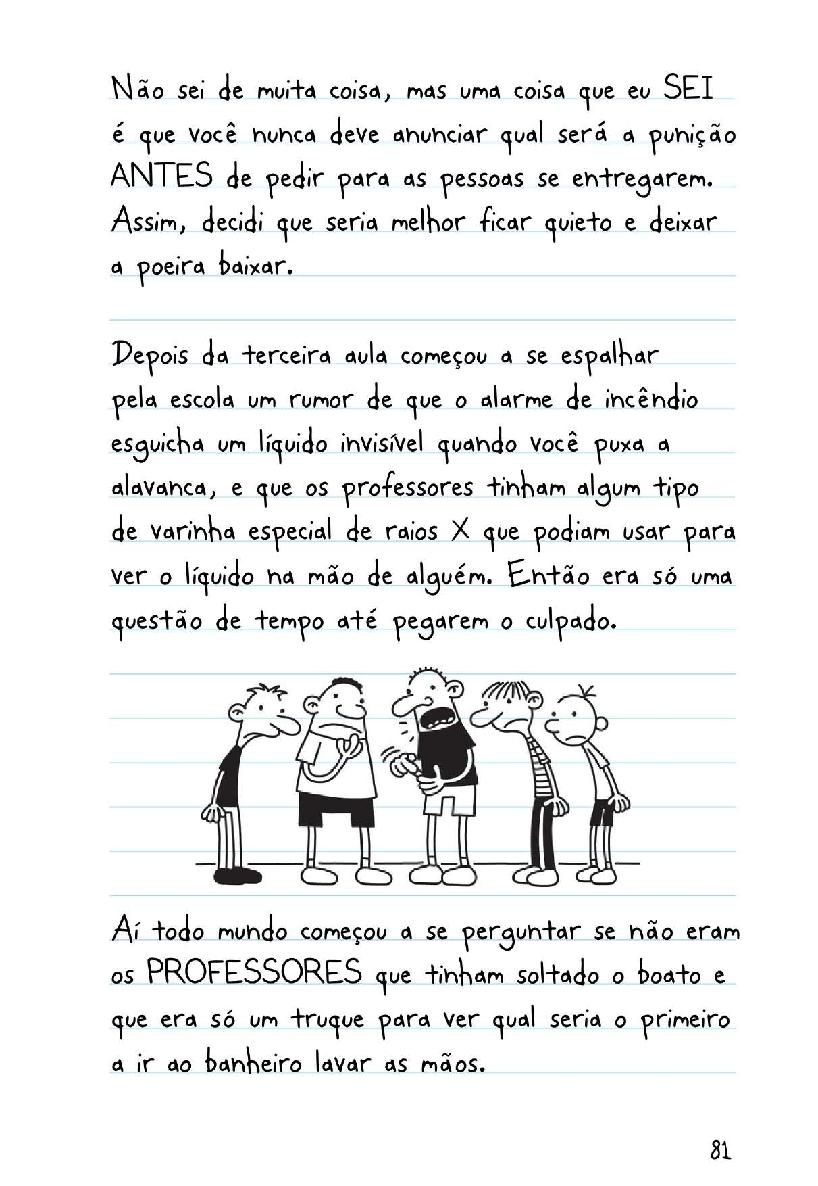 Não sei de muita coisa, mas uma coisa que eu SEI
é que você nunca deve anunciar qual será a punição
ANTES de pedir para as pessoas se entregarem.
Assim, decidi que seria melhor ficar quieto e deixar
a poeira baixar.
Depois da terceira aula começou a se espalhar
pela escola um rumor de que o alarme de incêndio
esguicha um líquido invisível quando você puxa a
alavanca, e que os professores tinham algum tipo
de varinha especial de raios X que podiam usar para
ver o líquido na mão de alguém. Então era só uma
questão de tempo até pegarem o culpado.
Aí todo mundo começou a se perguntar se não eram
os PROFESSORES que tinham soltado o boato e
que era só um truque para ver qual seria o primeiro
a ir ao banheiro lavar as mãos.
81